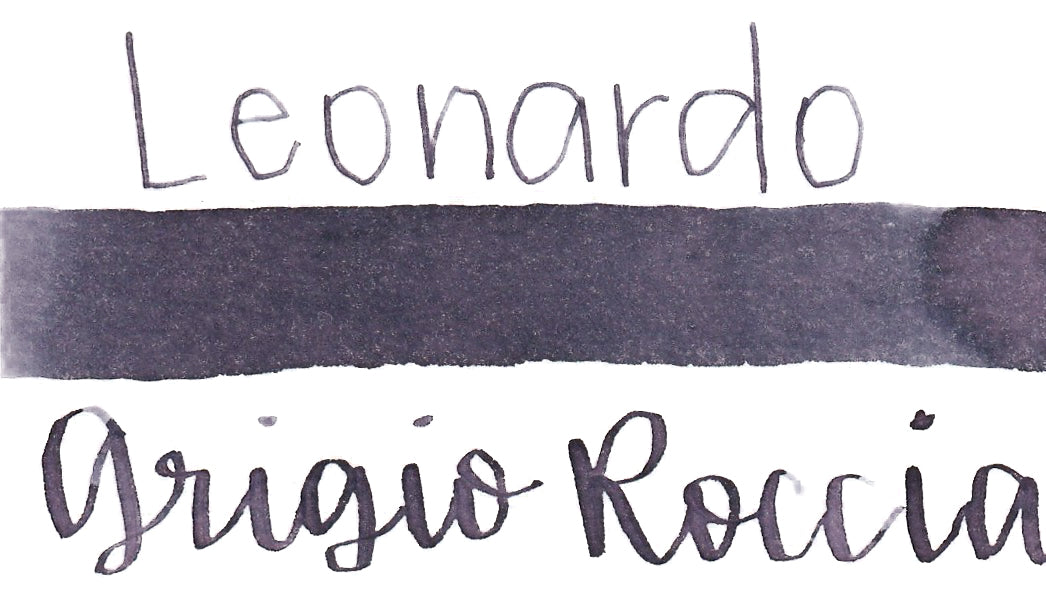 Leonardo
Grigio Roccia